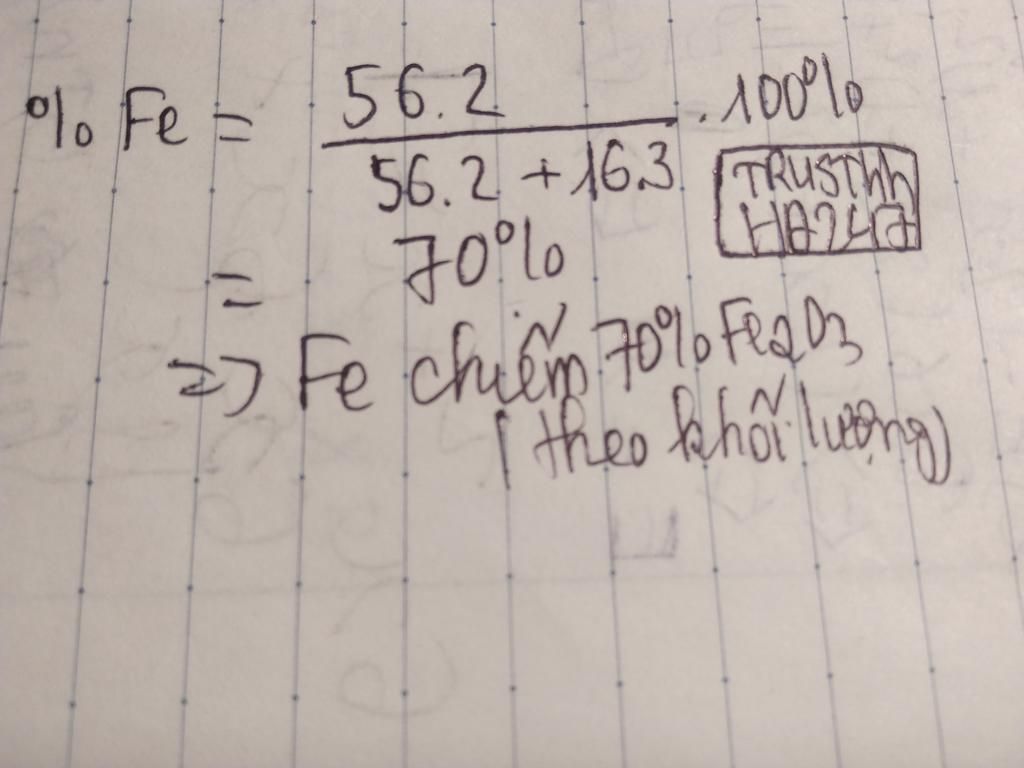 % Fe = 56.2 .100%
56.2 + 16.3
TRUSThh
= 70%
=> Fe chiếm 70% Fe2O3
( theo khối lượng)